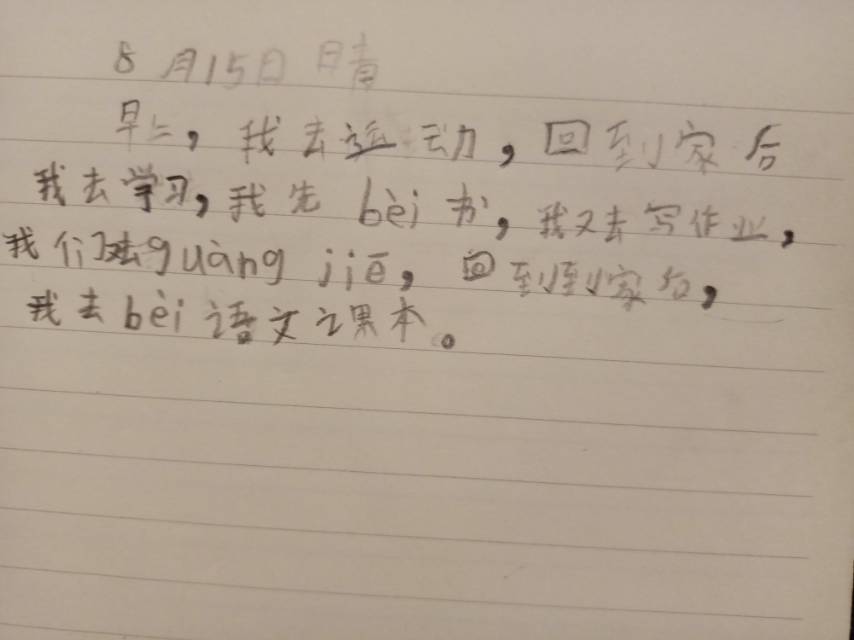 8月15日 晴
早上，我去运动，回到家后
我去学习，我先bèi书，我又去写作业，
我们去guàng jiē，回到到家后，
我去bèi语文课本。